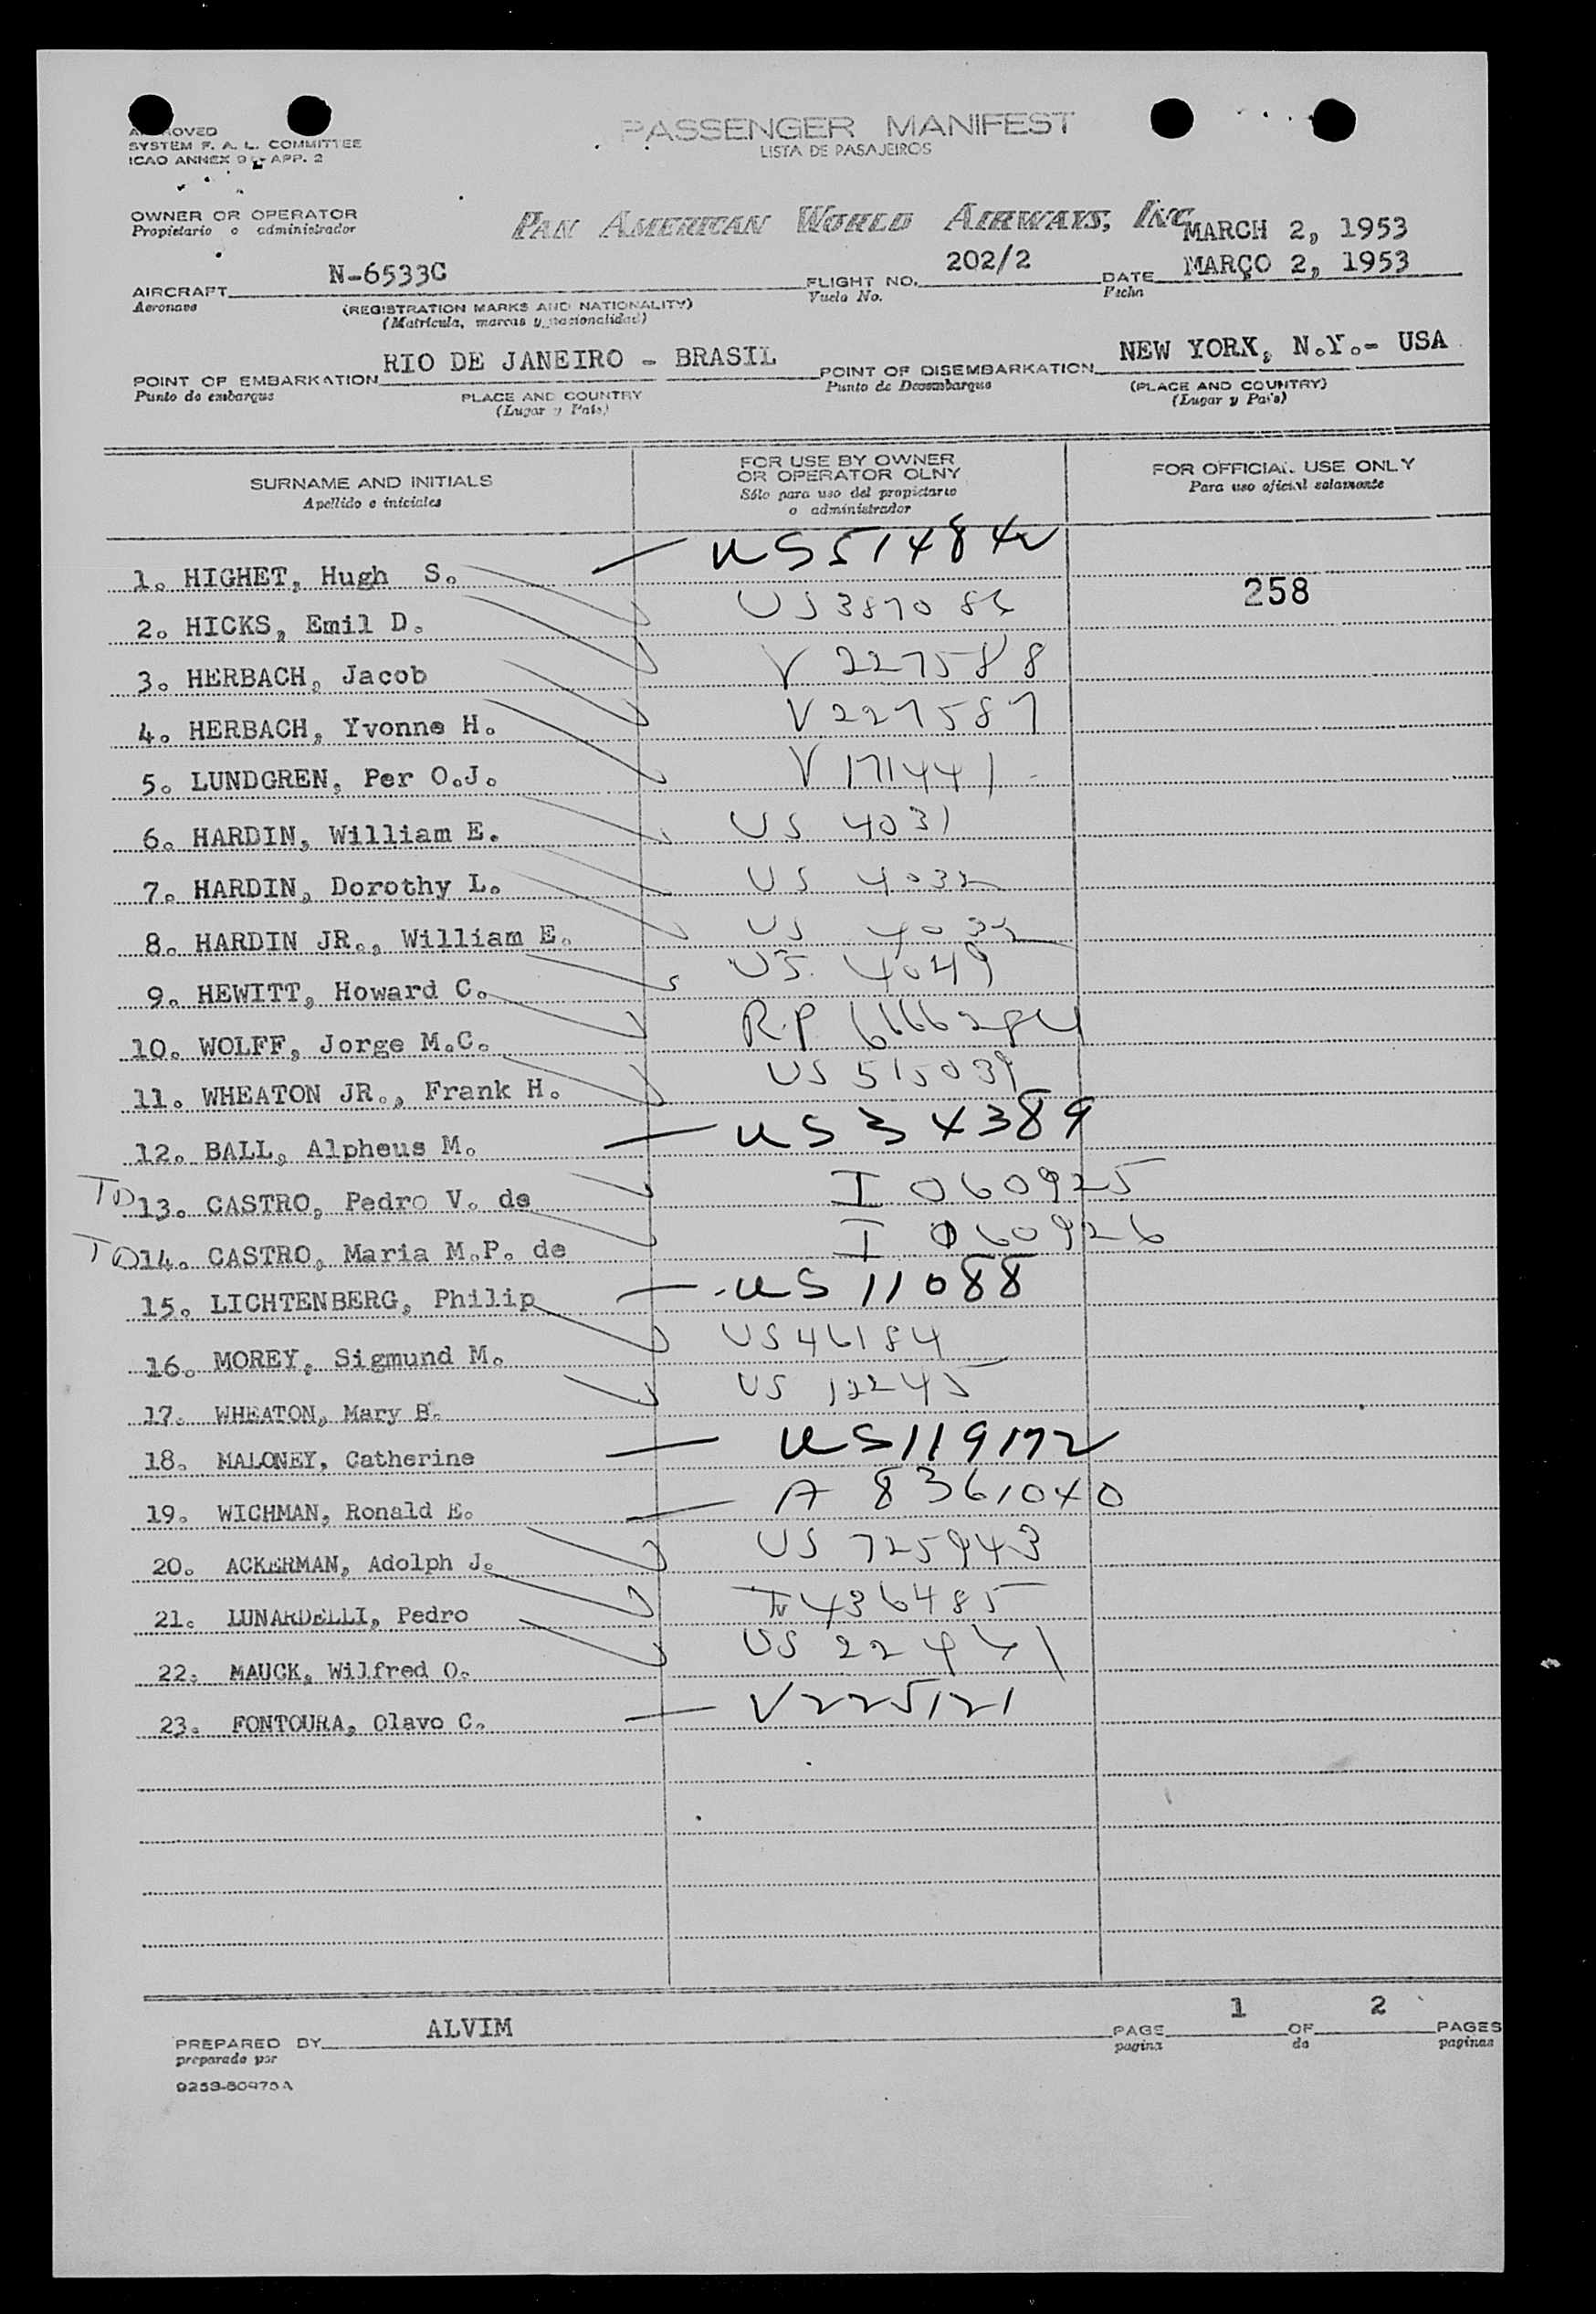 APPROVED
SYSTEM F. A. L. COMMITTEE
ICAO ANNEX 9 - APP. 2
PASSENGER MANIFEST
LISTA DE PASAJEIROS
OWNER OR OPERATOR
Propietario o administrador
PAN AMERICAN WORLD AIRWAYS, INC.
MARCH 2, 1953
AIRCRAFT N-6533C FLIGHT NO. 202/2 DATE MARÇO 2, 1953
Aeronave Vuelo No. Fecha
(REGISTRATION MARKS AND NATIONALITY)
(Matricula, marcas y nacionalidad)
POINT OF EMBARKATION RIO DE JANEIRO - BRASIL POINT OF DISEMBARKATION NEW YORK, N.Y.- USA
Punto de embarque Punto de Desembarque
PLACE AND COUNTRY (PLACE AND COUNTRY)
(Lugar y Pais) (Lugar y Pais)
SURNAME AND INITIALS
Apellido e iniciales
FOR USE BY OWNER
OR OPERATOR OLNY
Sólo para uso del propietario
o administrador
FOR OFFICIAL USE ONLY
Para uso oficial solamente
1. HIGHET, Hugh S. US 51484
258
2. HICKS, Emil D. US 3870
3. HERBACH, Jacob V 227588
4. HERBACH, Yvonne H. V 227587
5. LUNDGREN, Per O.J. V 171441
6. HARDIN, William E. US 4031
7. HARDIN, Dorothy L. US 4032
8. HARDIN JR., William E. US
9. HEWITT, Howard C. US 4049
10. WOLFF, Jorge M.C. R.P.
11. WHEATON JR., Frank H. US 515039
12. BALL, Alpheus M. US 34389
TD 13. CASTRO, Pedro V. de I 060925
TD 14. CASTRO, Maria M.P. de I 060926
15. LICHTENBERG, Philip US 11088
16. MOREY, Sigmund M. US 46184
17. WHEATON, Mary B. US 12245
18. MALONEY, Catherine US 119172
19. WICHMAN, Ronald E. A 8361040
20. ACKERMAN, Adolph J. US 725943
21. LUNARDELLI, Pedro 436485
22. MAUCK, Wilfred O. US
23. FONTOURA, Olavo C. V 225121
PREPARED BY ALVIM PAGE 1 OF 2 PAGES
preparado por pagina de paginas